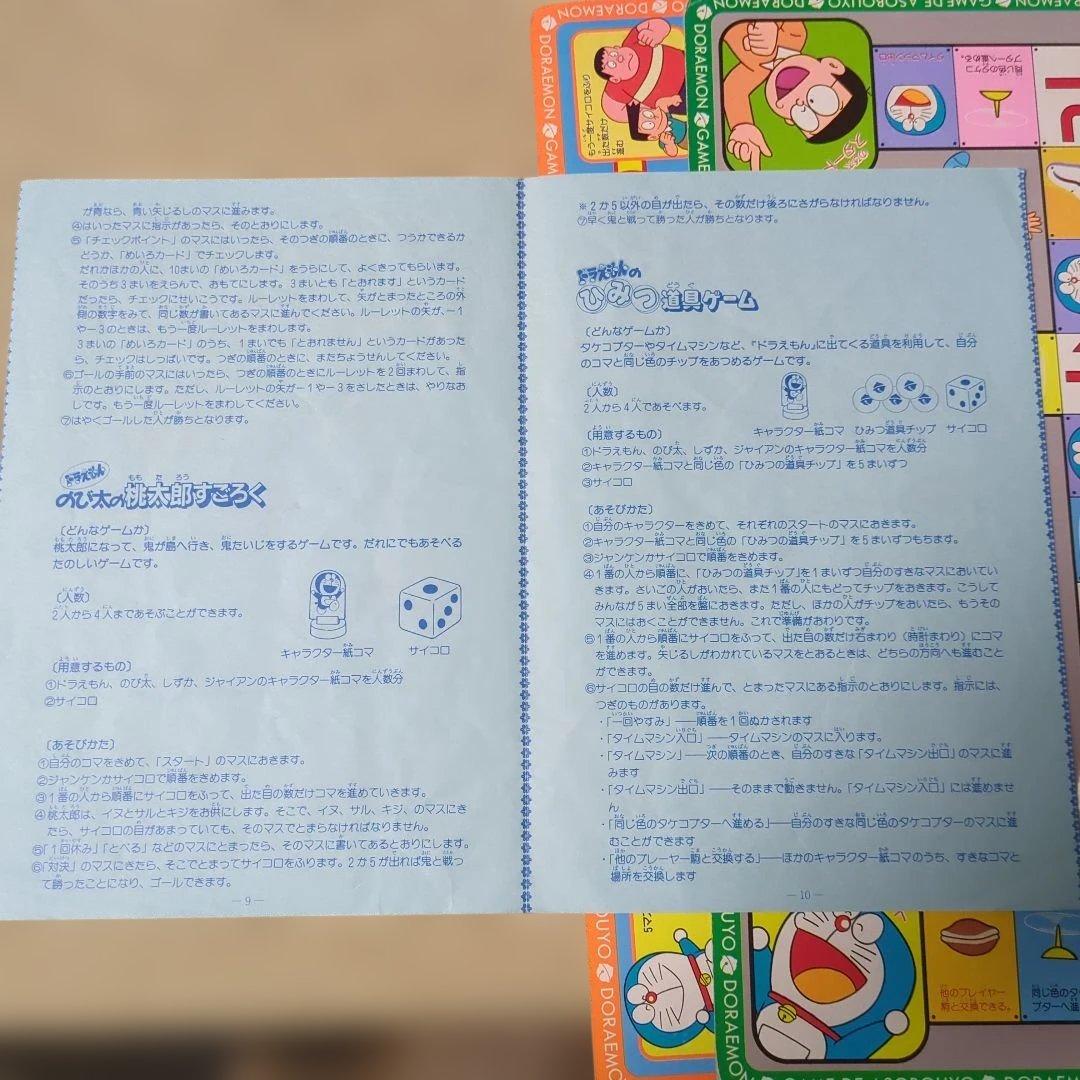 が青なら、青い矢じるしのマスに進みます。
④はいったマスに指示があったら、そのとおりにします。
⑤「チェックポイント」のマスにはいったら、そのつぎの順番のときに、つうかできるか
どうか、「めいろカード」でチェックします。
だれかほかの人に、10まいの「めいろカード」をうらにして、よくきってもらいます。
そのうち3まいをえらんで、おもてにします。3まいとも「とおれます」というカード
だったら、チェックにせいこうです。ルーレットをまわして、矢がとまったところの外
側の数字をみて、同じ数が書いてあるマスに進んでください。ルーレットの矢が、−1
や−3のときは、もう一度ルーレットをまわします。
3まいの「めいろカード」のうち、1まいでも「とおれません」というカードがあった
ら、チェックはしっぱいです。つぎの順番のときに、またちょうせんしてください。
⑥ゴールの手前のマスにはいったら、つぎの順番のときにルーレットを2回まわして、指
示のとおりにします。ただし、ルーレットの矢が−1や−3をさしたときは、やりなお
しです。もう一度ルーレットをまわしてください。
⑦はやくゴールした人が勝ちとなります。
ドラえもん
のび太の桃太郎すごろく
〔どんなゲームか〕
桃太郎になって、鬼が島へ行き、鬼たいじをするゲームです。だれにでもあそべる
たのしいゲームです。
〔人数〕
2人から4人まであそぶことができます。
キャラクター紙コマ サイコロ
〔用意するもの〕
①ドラえもん、のび太、しずか、ジャイアンのキャラクター紙コマを人数分
②サイコロ
〔あそびかた〕
①自分のコマをきめて、「スタート」のマスにおきます。
②ジャンケンかサイコロで順番をきめます。
③1番の人から順番にサイコロをふって、出た目の数だけコマを進めていきます。
④桃太郎は、イヌとサルとキジをお供にします。そこで、イヌ、サル、キジ、のマスにき
たら、サイコロの目があまっていても、そのマスでとまらなければなりません。
⑤「1回休み」「とべる」などのマスにとまったら、そのマスに書いてあるとおりにします。
⑥「対決」のマスにきたら、そこでとまってサイコロをふります。2か5が出れば鬼と戦っ
て勝ったことになり、ゴールできます。
―9―
※2か5以外の目が出たら、その数だけ後ろにさがらなければなりません。
⑦早く鬼と戦って勝った人が勝ちとなります。
ドラえもんの
ひみつ道具ゲーム
〔どんなゲームか〕
タケコプターやタイムマシンなど、『ドラえもん』に出てくる道具を利用して、自分
のコマと同じ色のチップをあつめるゲームです。
〔人数〕
2人から4人であそべます。
キャラクター紙コマ ひみつ道具チップ サイコロ
〔用意するもの〕
①ドラえもん、のび太、しずか、ジャイアンのキャラクター紙コマを人数分
②キャラクター紙コマと同じ色の「ひみつの道具チップ」を5まいずつ
③サイコロ
〔あそびかた〕
①自分のキャラクターをきめて、それぞれのスタートのマスにおきます。
②キャラクター紙コマと同じ色の「ひみつの道具チップ」を5まいずつもちます。
③ジャンケンかサイコロで順番をきめます。
④1番の人から順番に、「ひみつの道具チップ」を1まいずつ自分のすきなマスにおいてい
きます。さいごの人がおいたら、また1番の人にもどってチップをおきます。こうして
みんなが5まい全部を盤におきます。ただし、ほかの人がチップをおいたら、もうその
マスにはおくことができません。これで準備がおわりです。
⑤1番の人から順番にサイコロをふって、出た目の数だけ右まわり(時計まわり)にコマ
を進めます。矢じるしがわかれているマスをとおるときは、どちらの方向へも進むこと
ができます。
⑥サイコロの目の数だけ進んで、とまったマスにある指示のとおりにします。指示には、
つぎのものがあります。
・「一回やすみ」――順番を1回ぬかされます
・「タイムマシン入口」――タイムマシンのマスに入ります。
・「タイムマシン」――次の順番のとき、自分のすきな「タイムマシン出口」のマスに進
みます
・「タイムマシン出口」――そのままで動きません。「タイムマシン入口」には進めませ
ん
・「同じ色のタケコプターへ進める」――自分のすきな同じ色のタケコプターのマスに進
むことができます
・「他のプレーヤー駒と交換する」――ほかのキャラクター紙コマのうち、すきなコマと
場所を交換します
―10―
DORAEMON
GAME DE ASOBOUYO
DORAEMON
DORAEMON
DORAEMON
もう一度サイコロをふり
出た数だけ
進む
タイムマシン出口
同じ色のタケコ
プターへ進める。
他のプレイヤー
駒と交換できる。
同じ色のタ
プターへ進
DORAEMON
DORAEMON